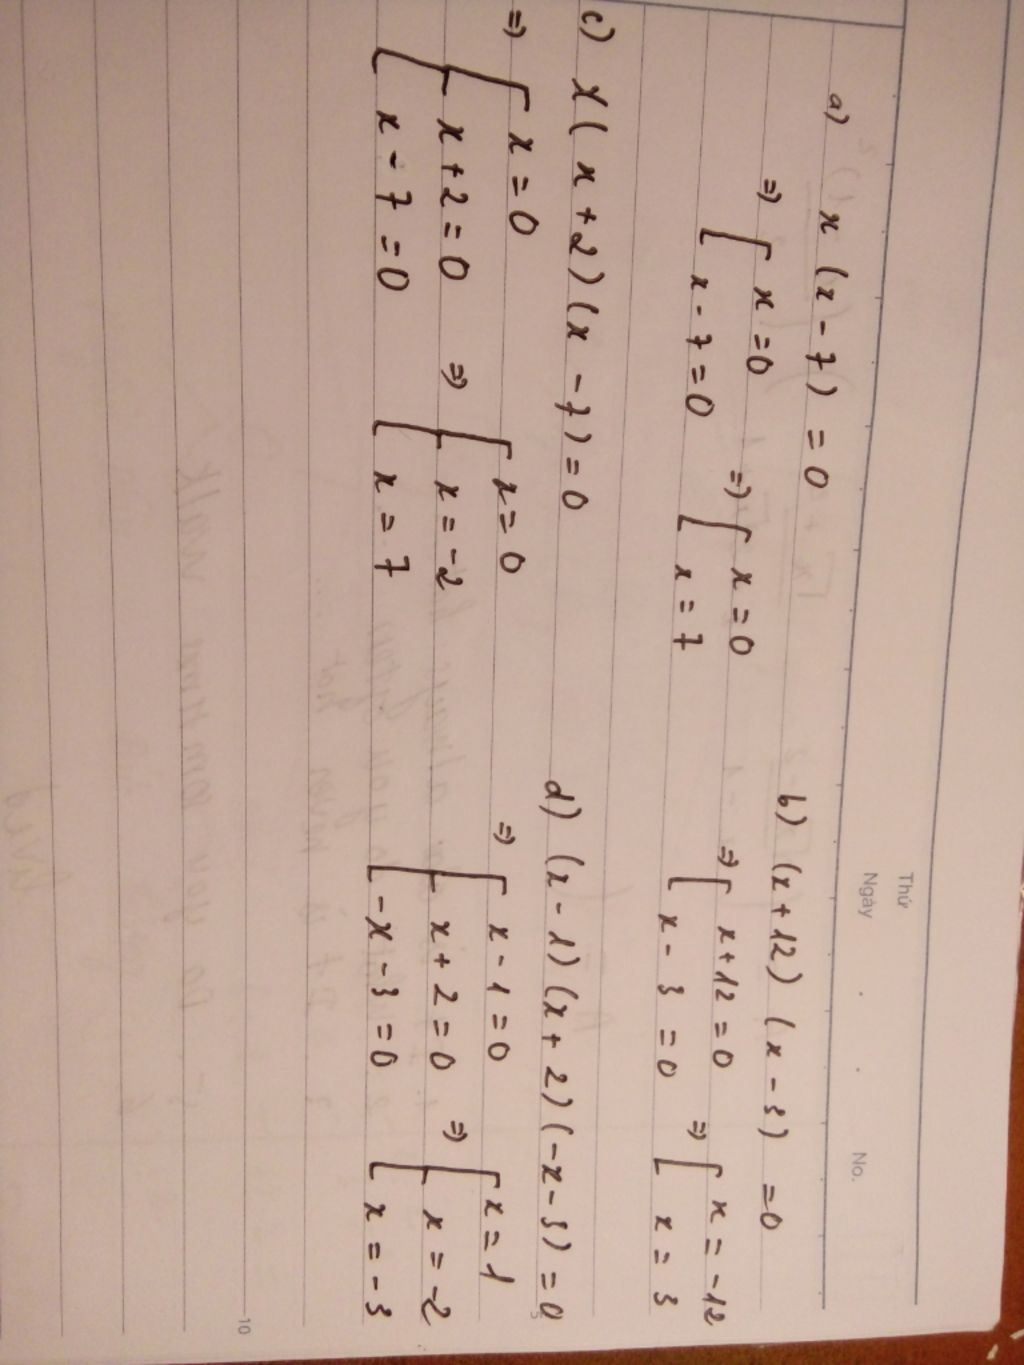 Thứ
Ngày No.
a) x (x - 7) = 0
=> [ x = 0
x - 7 = 0
=> [ x = 0
x = 7
b) (x + 12) (x - 3) = 0
=> [ x + 12 = 0
x - 3 = 0
=> [ x = -12
x = 3
c) x (x + 2) (x - 7) = 0
=> [ x = 0
x + 2 = 0
x - 7 = 0
=> [ x = 0
x = -2
x = 7
d) (x - 1) (x + 2) (-x - 3) = 0
=> [ x - 1 = 0
x + 2 = 0
-x - 3 = 0
=> [ x = 1
x = -2
x = -3
5
10